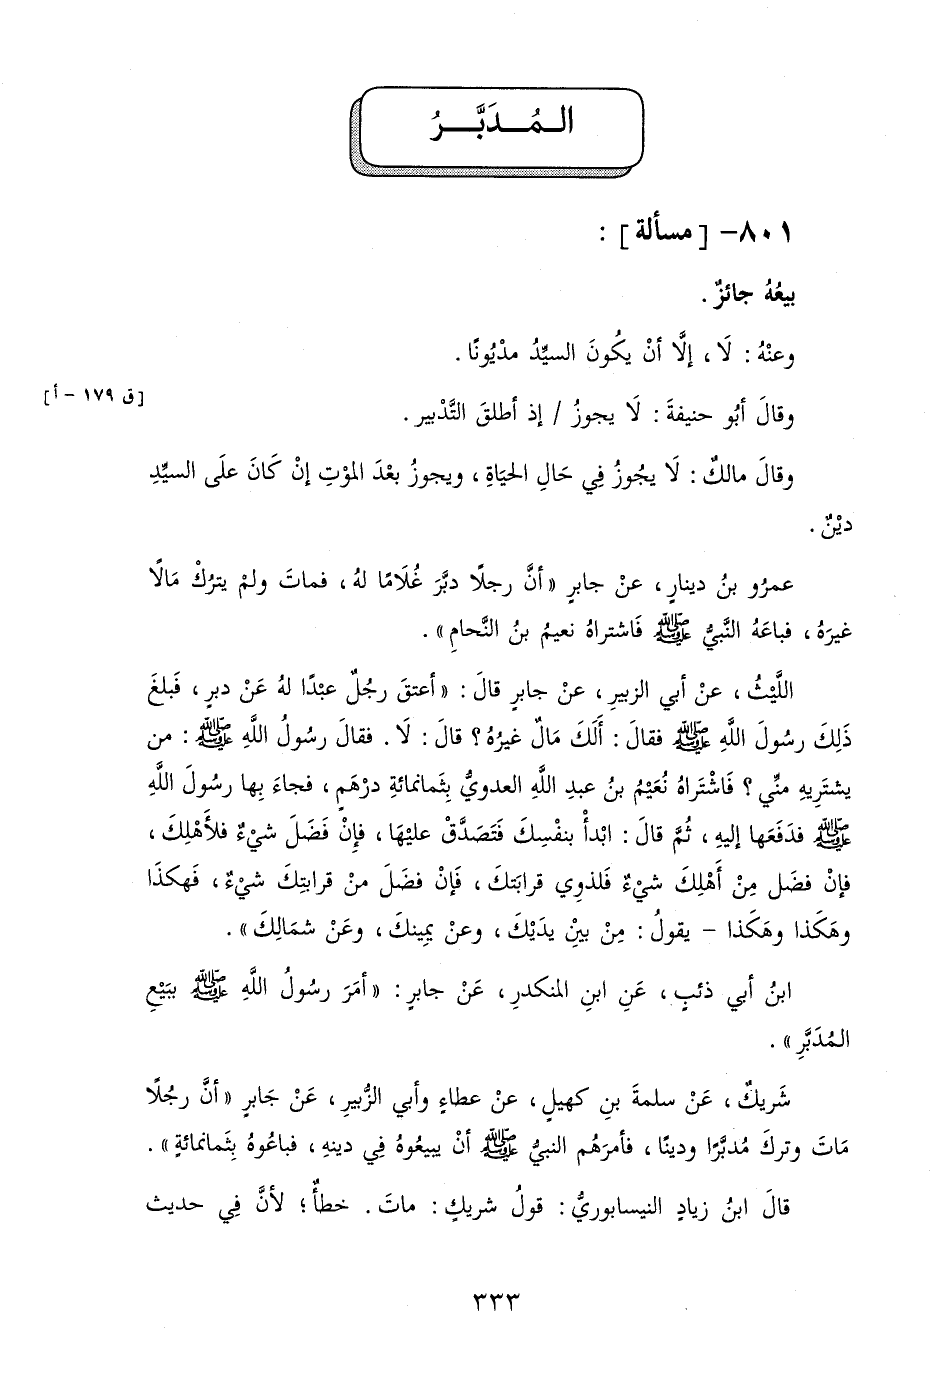 المُدَبَّرُ
٨٠١- [مسألة] :
بيعُهُ جائزٌ .
وعنْهُ : لَا ، إلَّا أنْ يكُونَ السيِّدُ مدْيُونًا .
[ق ١٧٩ - أ]
وقالَ أبُو حنيفةَ : لَا يجوزُ / إذ أطلقَ التَّدْبير .
وقالَ مالكٌ : لَا يجُوزُ فِي حَالِ الحيَاةِ ، ويجوزُ بعْدَ الموْتِ إنْ كَانَ علَى السيِّدِ
ديْنٌ .
عمرُو بنُ دينارٍ ، عنْ جابرٍ « أنَّ رجلًا دبَّرَ غُلَامًا لهُ ، فماتَ ولمْ يترُكْ مَالًا
غيرَهُ ، فباعَهُ النَّبيُّ ﷺ فَاشتراهُ نعيمُ بنُ النَّحامِ » .
اللَّيْثُ ، عنْ أبي الزبيرِ ، عنْ جابرٍ قالَ : « أعتقَ رجُلٌ عبْدًا لهُ عَنْ دبرٍ ، فَبلغَ
ذَلِكَ رسُولَ اللَّهِ ﷺ فقالَ : أَلَكَ مَالٌ غيرُهُ ؟ قالَ : لَا . فقالَ رسُولُ اللَّهِ ﷺ : من
يشتَرِيهِ منِّي ؟ فَاشْتَراهُ نُعَيْمُ بنُ عبدِ اللَّهِ العدويُّ بِثمانمائةِ درْهَمٍ ، فجاءَ بِها رسُولَ اللَّهِ
ﷺ فدَفَعَها إليهِ ، ثُمَّ قالَ : ابْدأْ بنفْسِكَ فَتَصَدَّقْ عليْهَا ، فإِنْ فَضَلَ شيْءٌ فلأَهْلِكَ ،
فإنْ فضَل مِنْ أَهْلِكَ شيْءٌ فَلذوِي قرابَتكَ ، فَإنْ فضَلَ منْ قرابتِكَ شيْءٌ ، فَهكذَا
وهَكَذا وهَكَذا – يقولُ : مِنْ بينِ يدَيْكَ ، وعنْ يمِينكَ ، وعَنْ شمَالِكَ » .
ابنُ أبي ذئبٍ ، عَنِ ابنِ المنكدرِ ، عَنْ جابرٍ : « أمَرَ رسُولُ اللَّهِ ﷺ ببَيْعِ
المُدَبَّرِ » .
شَريكٌ ، عَنْ سلمةَ بنِ كهيلٍ ، عنْ عطاءٍ وأبي الزُّبيرِ ، عَنْ جَابرٍ « أنَّ رجُلًا
مَاتَ وتركَ مُدبَّرًا ودينًا ، فأمرَهُم النبيُّ ﷺ أنْ يبيعُوهُ فِي دينهِ ، فباعُوهُ بِثَمانمائةٍ » .
قالَ ابنُ زيادٍ النيسابوريُّ : قولُ شريكٍ : ماتَ . خطأٌ ؛ لأنَّ فِي حديث
٣٣٣